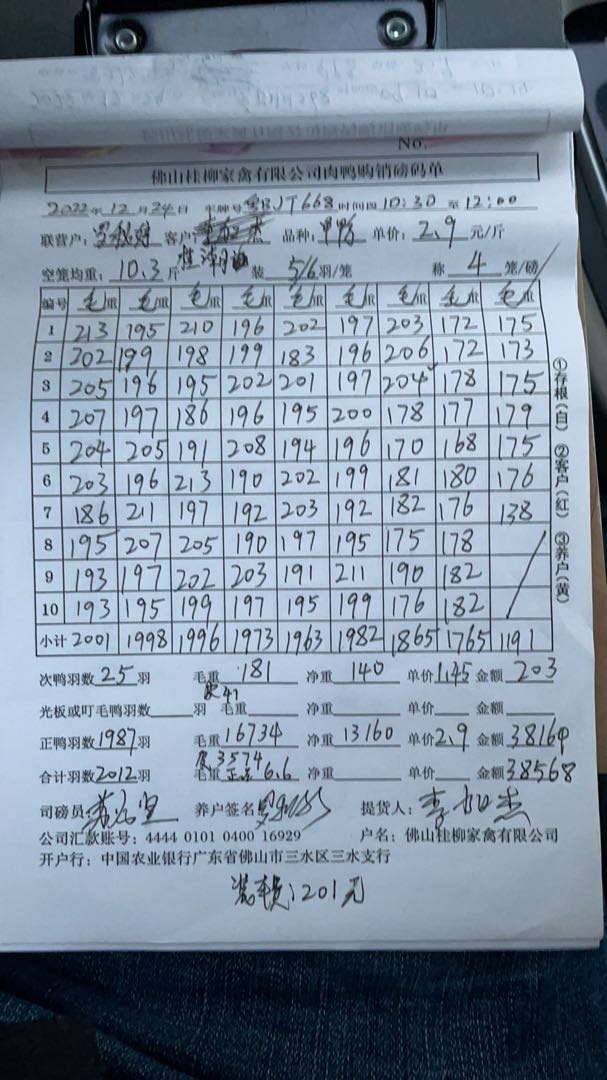 No.
佛山桂柳家禽有限公司肉鸭购销磅码单
2022年12月24日 车牌号 JT668 时间四 10:30 至 12:00
联营户: 客户: 杰 品种: 单价: 2.9 元/斤
空笼均重: 10.3 斤 装 5/6 羽/笼 称 4 笼/磅
编号 毛重 毛重 毛重 毛重 毛重 毛重 毛重 毛重 毛重
1 213 195 210 196 202 197 203 172 175
2 202 199 198 199 183 196 206 172 173
3 205 196 195 202 201 197 204 178 175
4 207 197 186 196 195 200 178 177 179
5 204 205 191 208 194 196 170 168 175
6 203 196 213 190 202 199 181 180 176
7 186 211 197 192 203 192 182 176 138
8 195 207 205 190 197 195 175 178
9 193 197 202 203 191 211 190 182
10 193 195 199 197 195 199 176 182
小计 2001 1998 1996 1973 1963 1982 1865 1765 1191
①存根(白) ②客户(红) ③养户(黄)
次鸭羽数 25 羽 毛重 181 净重 140 单价 1.45 金额 203
皮41
光板或叮毛鸭羽数 羽 毛重 净重 单价 金额
正鸭羽数 1987 羽 毛重 16734 净重 13160 单价 2.9 金额 38164
皮3574
合计羽数 2012 羽 毛重 6.6 净重 单价 金额 38568
司磅员: 养户签名: 提货人: 李 杰
公司汇款账号: 4444 0101 0400 16929 户名: 佛山桂柳家禽有限公司
开户行: 中国农业银行广东省佛山市三水区三水支行
装车费:201元